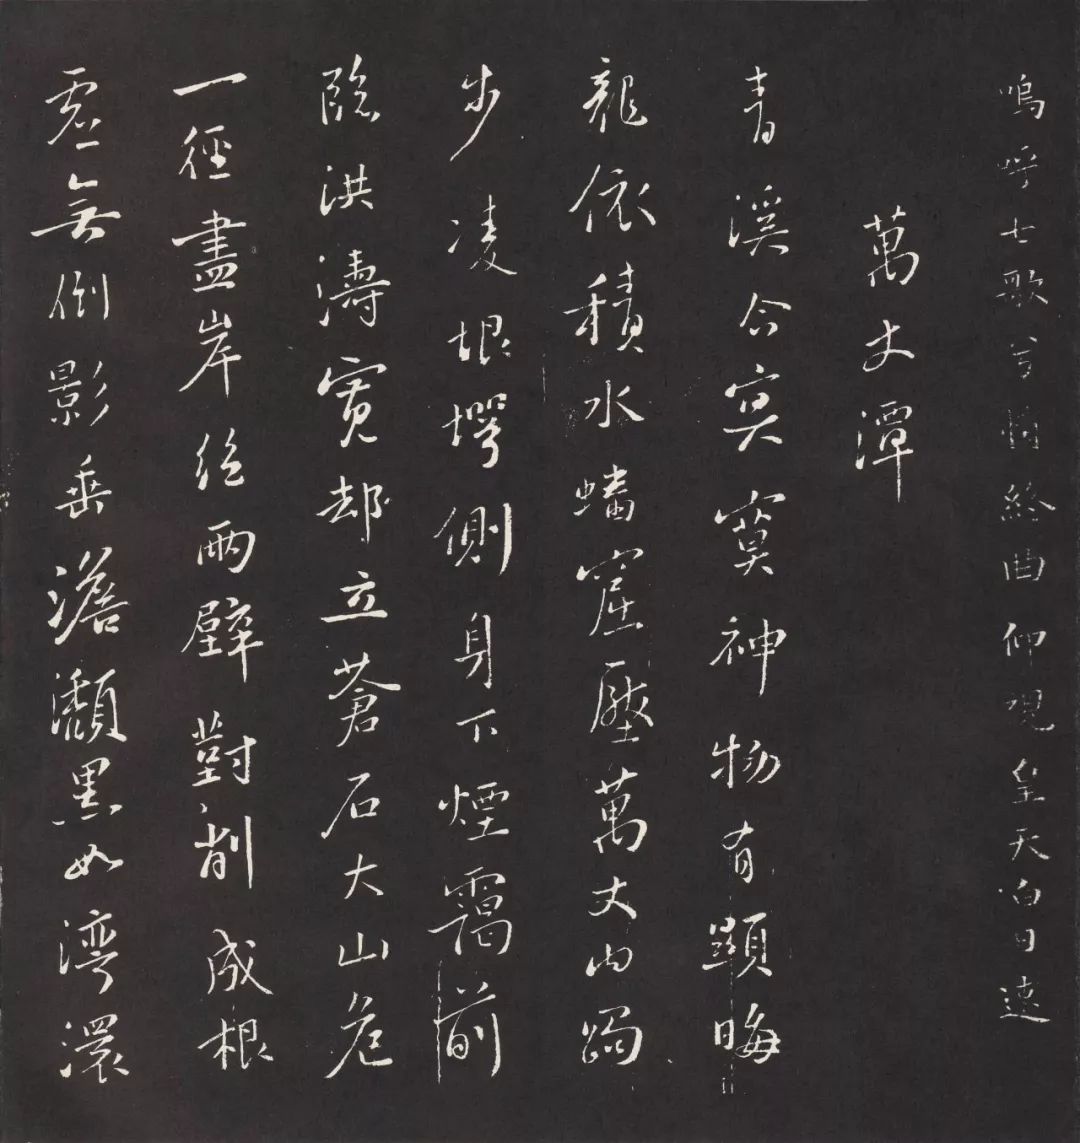 嗚呼七歌兮悄終曲仰視皇天白日速
萬丈潭
青溪合冥寞神物有顯晦
龍依積水蟠窟壓萬丈内跼
步凌垠堮側身下煙靄前
臨洪濤寬却立蒼石大山危
一徑盡岸絕兩壁對削成根
虛無倒影垂澹瀩黑如灣澴